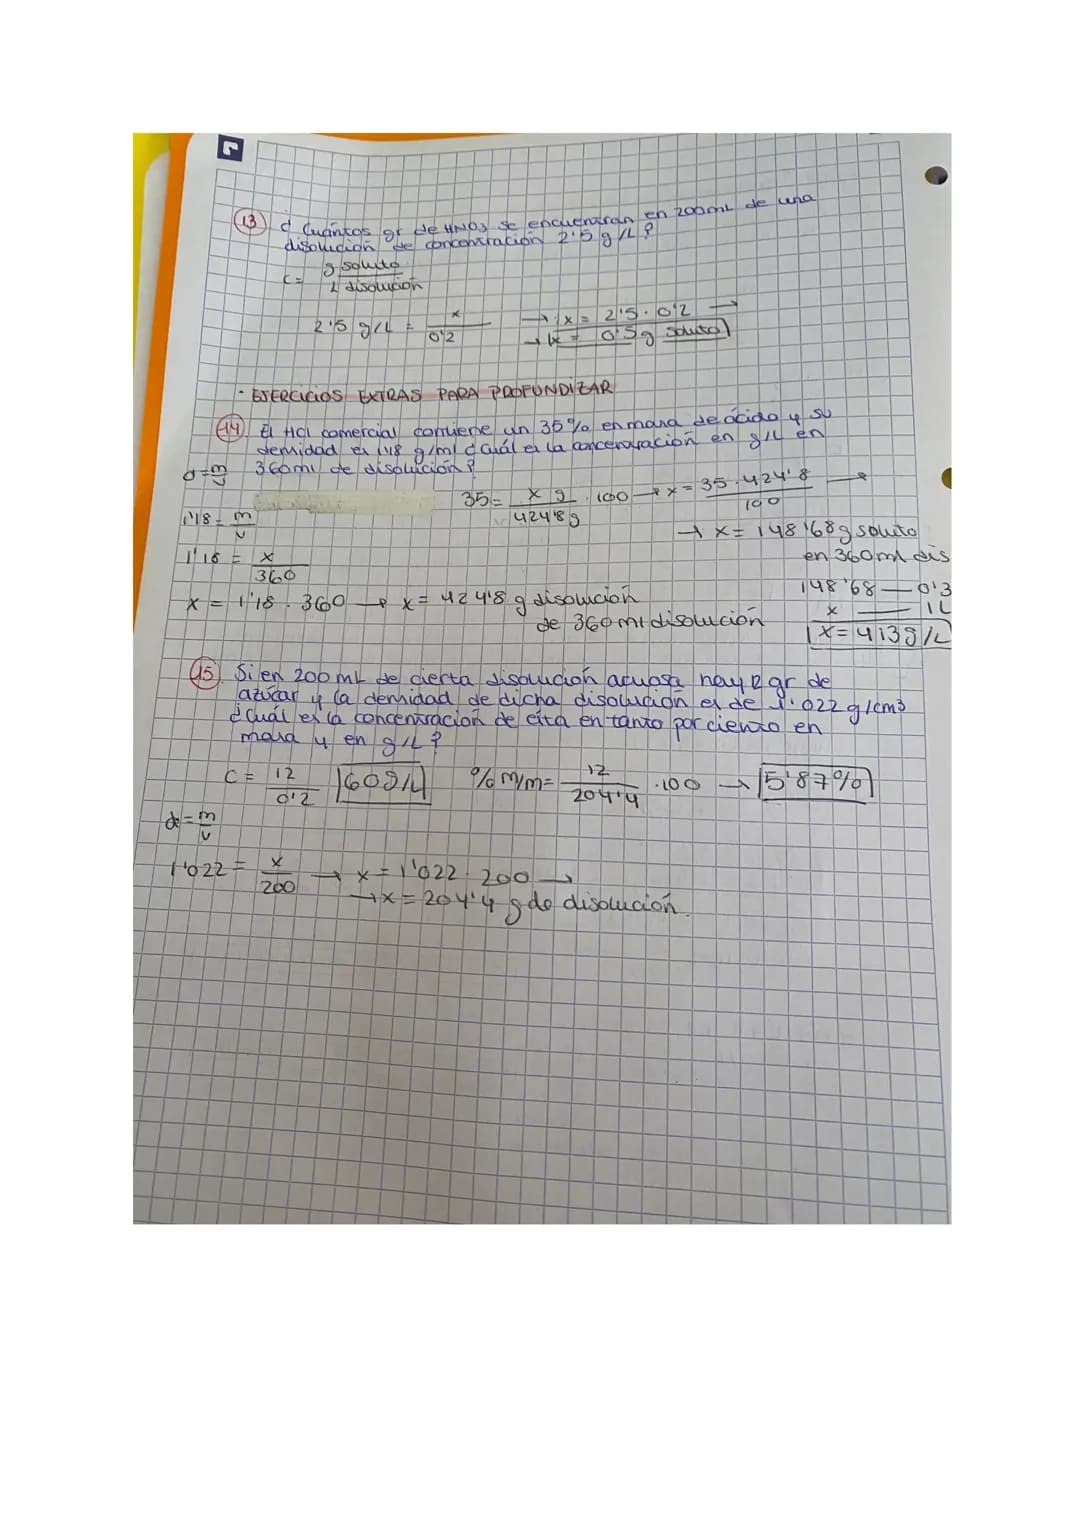 13 ¿Cuántos gr de HNO3 se encuentran en 200mL de una
disolución de concentración 2'5 g/L?
C= g soluto
L disolución
2'5 g/L = x
0'2
→ x = 2'5 · 0'2 →
→ x = 0'5g soluto
· EJERCICIOS EXTRAS PARA PROFUNDIZAR
14 El HCl comercial contiene un 35% en masa de ácido y su
densidad es 1'18 g/ml ¿cuál es la concentración en g/L en
360ml de disolución?
d = m
v
35 = x g · 100 → x = 35 · 424'8 →
424'8g 100
1'18 = m
v
→ x = 148'68g soluto
en 360ml dis
1'18 = x
360
148'68 — 0'3
x — 1L
x = 1'18 · 360 → x = 424'8 g disolución
de 360ml disolución
x = 413g/L
15 Si en 200mL de cierta disolución acuosa hay 12 gr de
azúcar y la densidad de dicha disolución es de 1'022 g/cm3
¿cuál es la concentración de esta en tanto por ciento en
masa y en g/L?
C = 12 60g/L % m/m= 12 · 100 → 5'87%
0'2 204'4
d = m
v
1'022 = x → x = 1'022 · 200 →
200
→ x = 204'4 g de disolución.